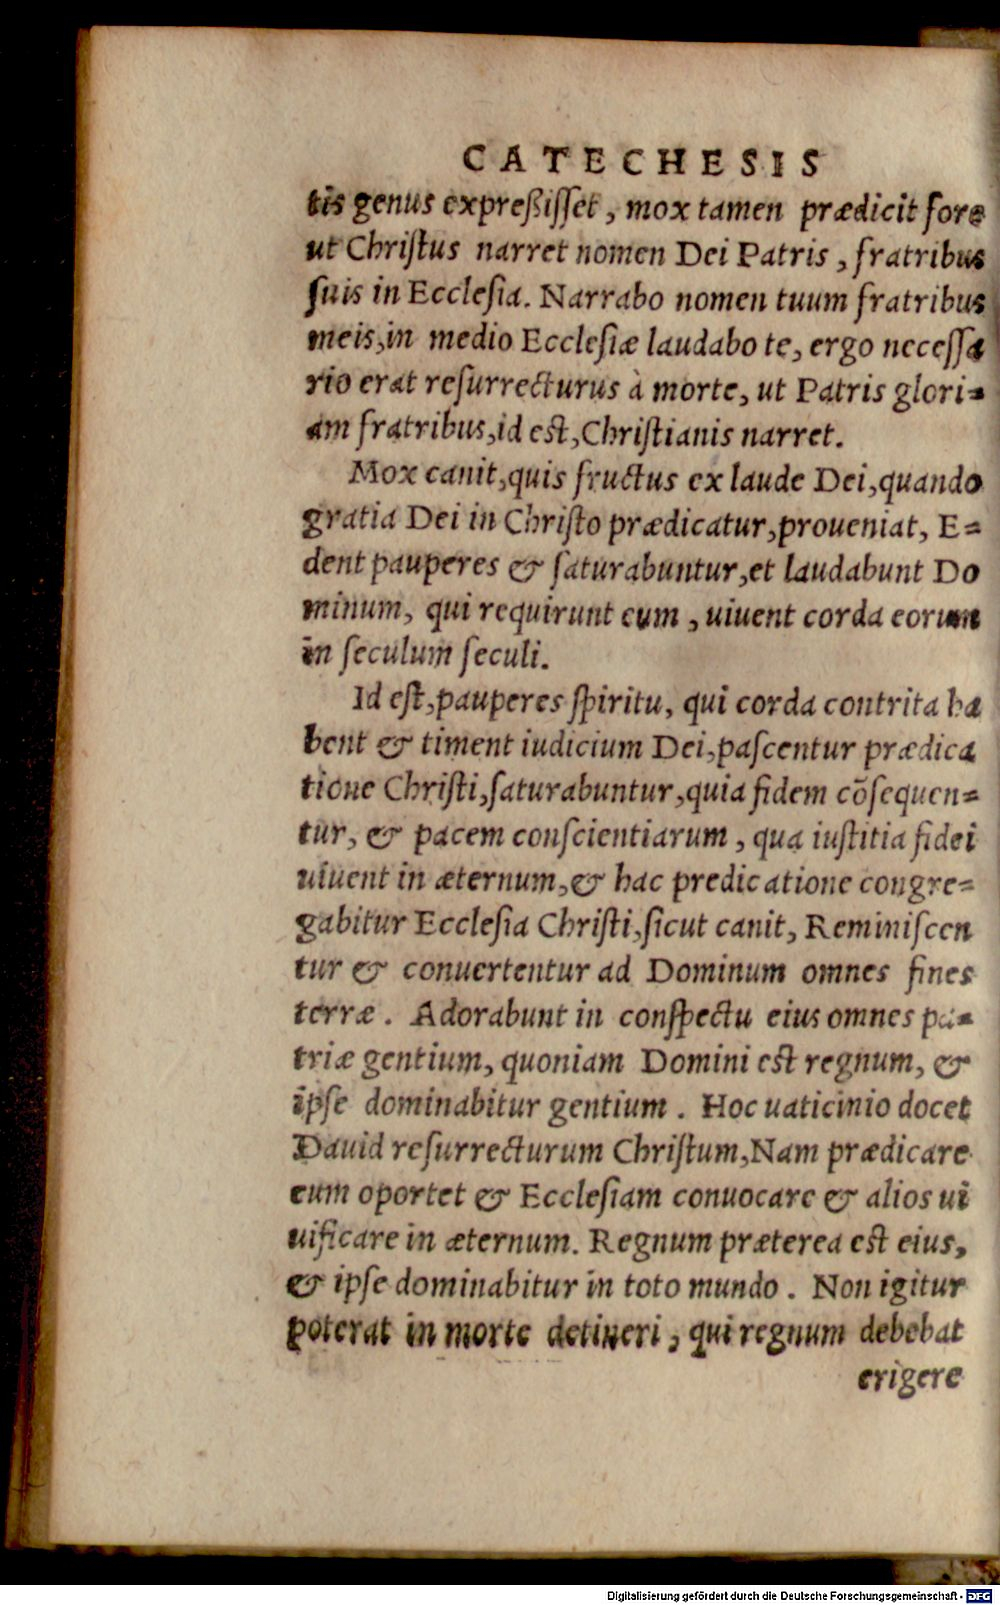 CATECHESIS
tis genus expreßisset, mox tamen prædicit fore
ut Christus narret nomen Dei Patris, fratribus
suis in Ecclesia. Narrabo nomen tuum fratribus
meis, in medio Ecclesiæ laudabo te, ergo necessa
rio erat resurrecturus à morte, ut Patris glori=
am fratribus, id est, Christianis narret.
Mox canit, quis fructus ex laude Dei, quando
gratia Dei in Christo prædicatur, proueniat, E=
dent pauperes & saturabuntur, et laudabunt Do
minum, qui requirunt eum, uiuent corda eorum
in seculum seculi.
Id est, pauperes spiritu, qui corda contrita ha
bent & timent iudicium Dei, pascentur prædica
tione Christi, saturabuntur, quia fidem cõsequen=
tur, & pacem conscientiarum, qua iustitia fidei
uiuent in æternum, & hac predicatione congre=
gabitur Ecclesia Christi, sicut canit, Reminiscen
tur & conuertentur ad Dominum omnes fines
terræ. Adorabunt in conspectu eius omnes pa=
triæ gentium, quoniam Domini est regnum, &
ipse dominabitur gentium. Hoc uaticinio docet
Dauid resurrecturum Christum, Nam prædicare
eum oportet & Ecclesiam conuocare & alios ui
uificare in æternum. Regnum præterea est eius,
& ipse dominabitur in toto mundo. Non igitur
poterat in morte detineri, qui regnum debebat
erigere
Digitalisierung gefördert durch die Deutsche Forschungsgemeinschaft - DFG